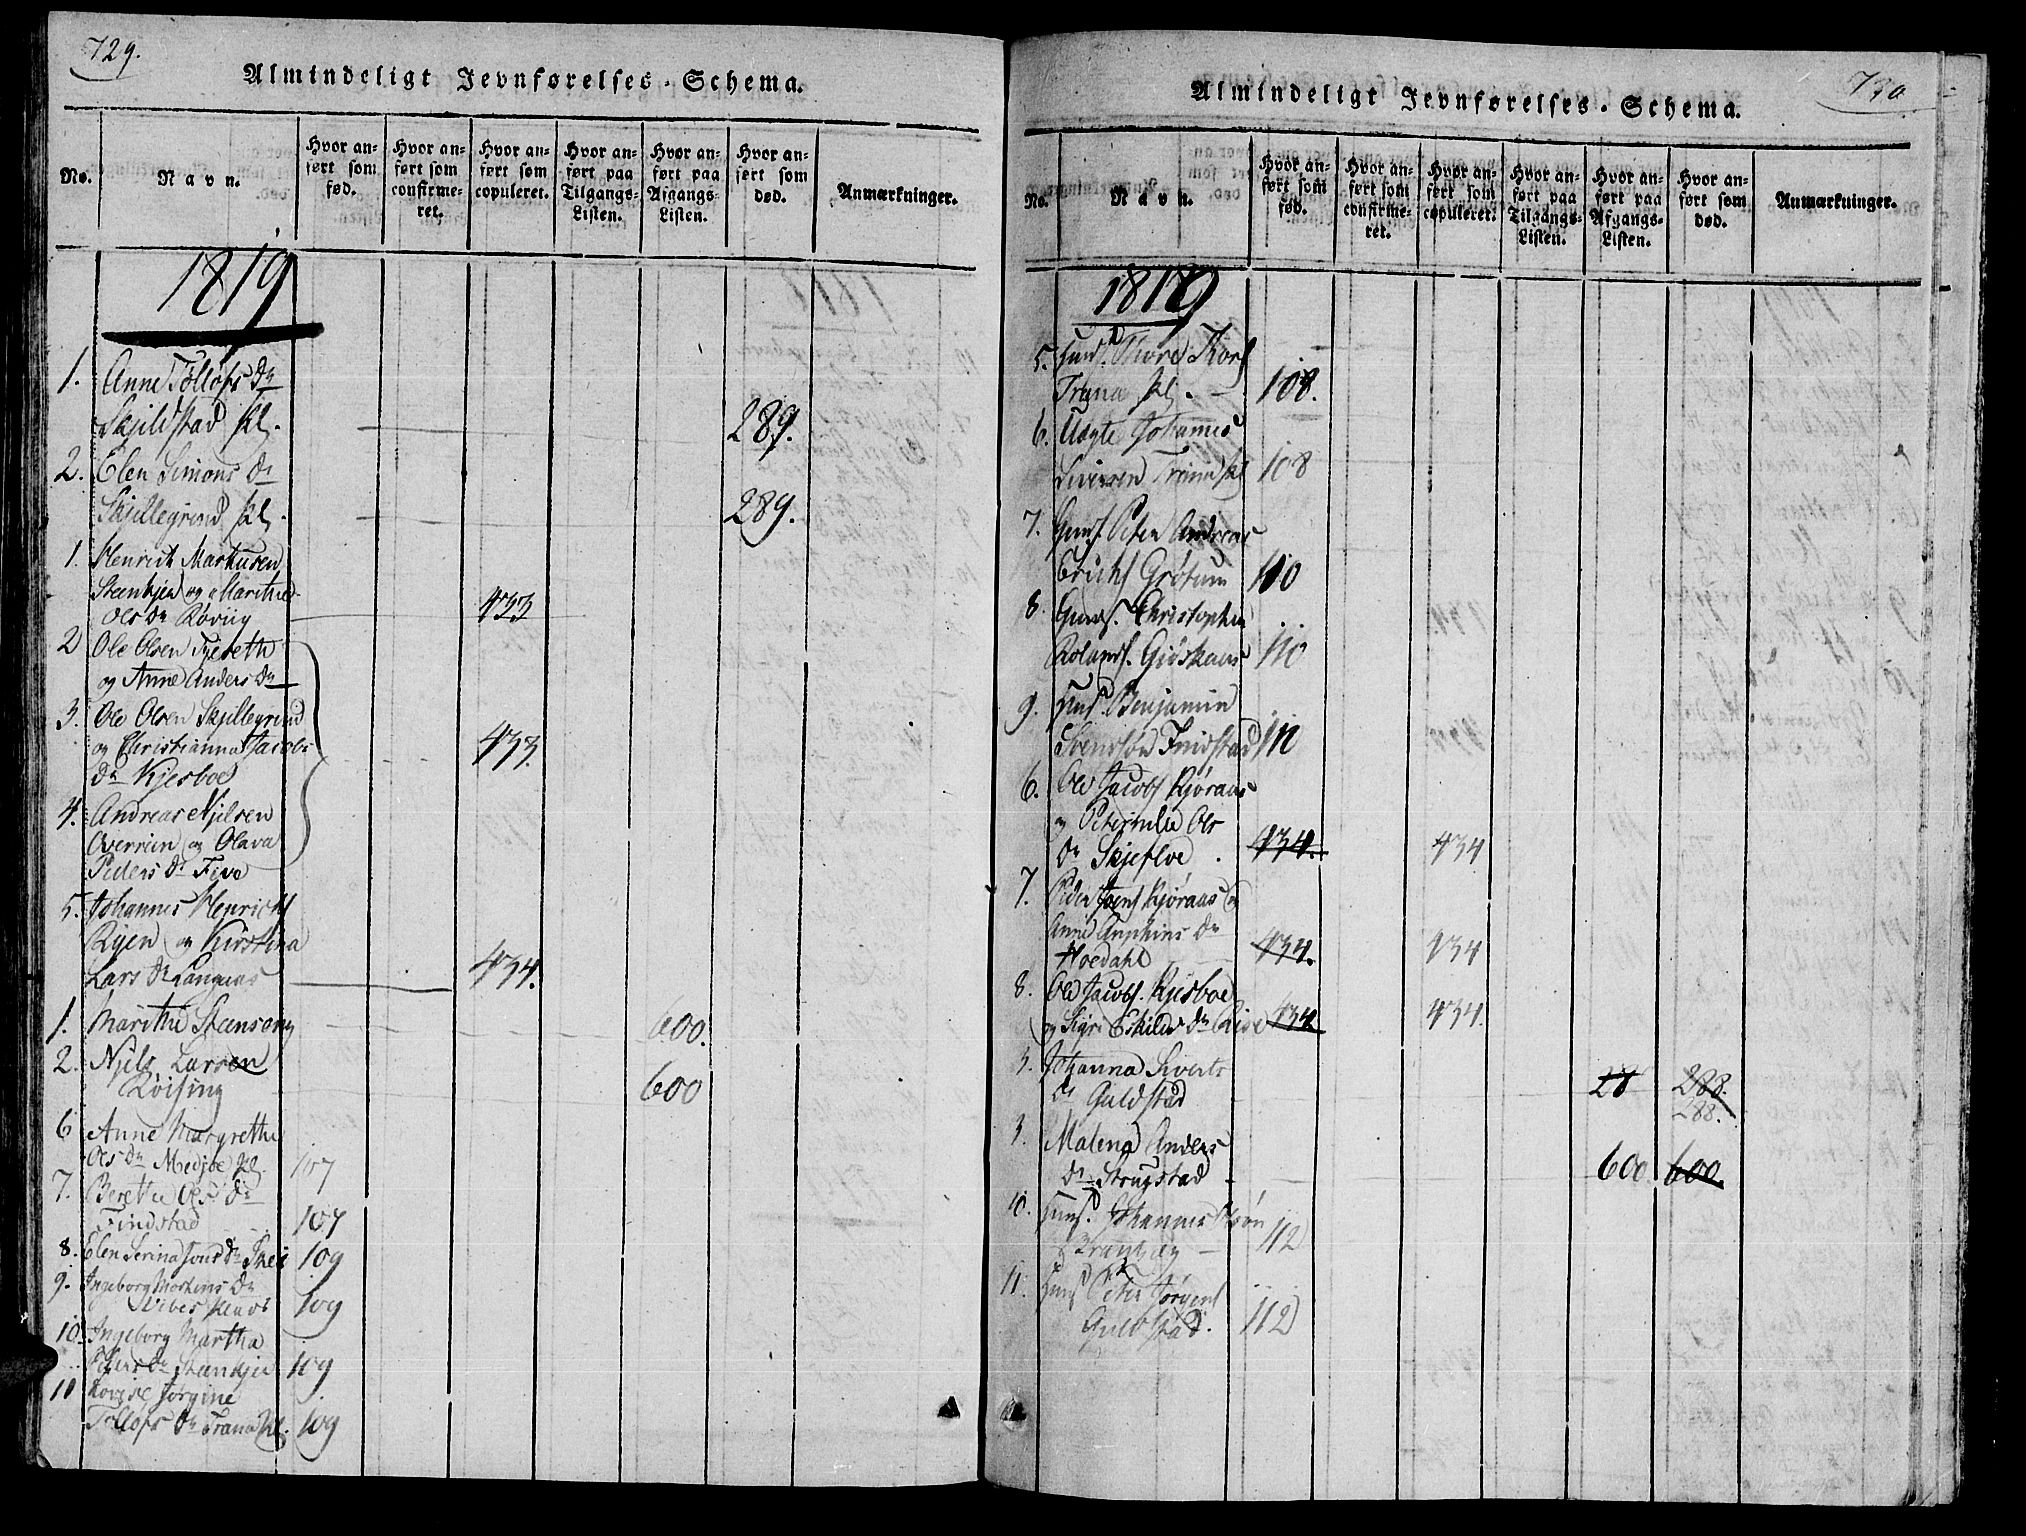 729.
Almindeligt Jevnførelses-Schema.
No.
Navn.
Hvor an-
ført som
fød.
Hvor an-
ført som
confirme-
ret.
Hvor an-
ført som
copuleret.
Hvor an-
ført paa
Tilgangs-
Listen.
Hvor an-
ført paa
Afgangs-
Listen.
Hvor an-
ført som
død.
Anmærkninger.
1819
1. Anne Tollofs Dr
Skjeldstad pl. 289.
2. Elen Simons Dr
Skjellegrind pl. 289.
1. Henrich Markusen
Steenkjer og Marithe
Ols Dr Røviig 433
2 Ole Olsen
og Anne Anders Dr
3. Ole Olsen Skjellegrind
og Christianna Jacobs 433.
Dr Kjesboe
4. Andreas Njelsen
Overrein og Olava
Peders Dr Five
5. Johannes Henrichs
Rijen og Kirstina
Lars Dr Langaas 434.
1. Marithe Steensong 600.
2. Njels Larsen
Røising 600
6 Anne Margrethe
Ols Dr Medjoe pl. 107
7. Berethe Ols Dr
Findstad 107
8. Elen Serina Jons Dr 109
9. Ingeborg Mortens Dr
109
10. Ingeborg Martha
Dr Steenkjer 109
11 Lovise Jørgine
Tollofs Dr Trana pl. 109
730
Almindeligt Jevnførelses-Schema.
No.
Navn.
Hvor an-
ført som
fød.
Hvor an-
ført som
confirme-
ret.
Hvor an-
ført som
copuleret.
Hvor an-
ført paa
Tilgangs-
Listen.
Hvor an-
ført paa
Afgangs-
Listen.
Hvor an-
ført som
død.
Anmærkninger.
1819
5. Thore
Trana pl. 108.
6. Uægte Johannes
Trana pl 108
7. Peter Andreas
Erichs Grøtum 110
8. Christopher
Rolands. Gjøskaas 110
9. Benjamin
Svensøn Findstad 110
6. Ole Jacobs Kjøraas
og Peternille Ols
Dr Skjefloe. 434. 434
7. Peder Jens Kjøraas og
Anne Dr
Hoedahl 434. 434
8. Ole Jacobs. Kjesboe
og Sigri Eskilds Dr Rise 434 434.
3. Johanna Siverts
Dr Guldstad 28 288.
288.
3. Malena Anders
Dr Strugstad 600 600.
10. Johannes
112
11. Peter Jørgens
Guldstad. 112